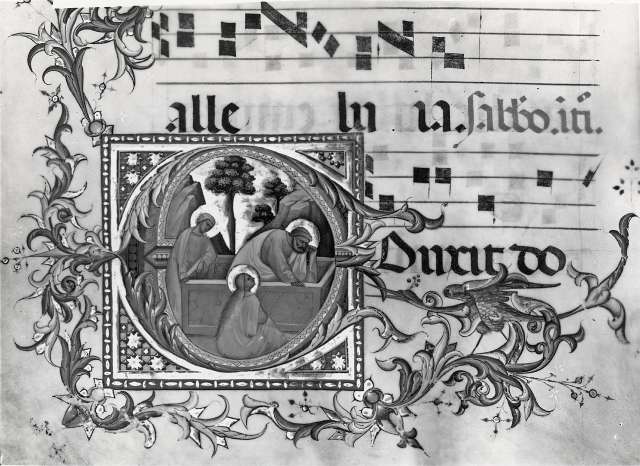 alle lu ia. Sabbo. iti.
E Duxit do